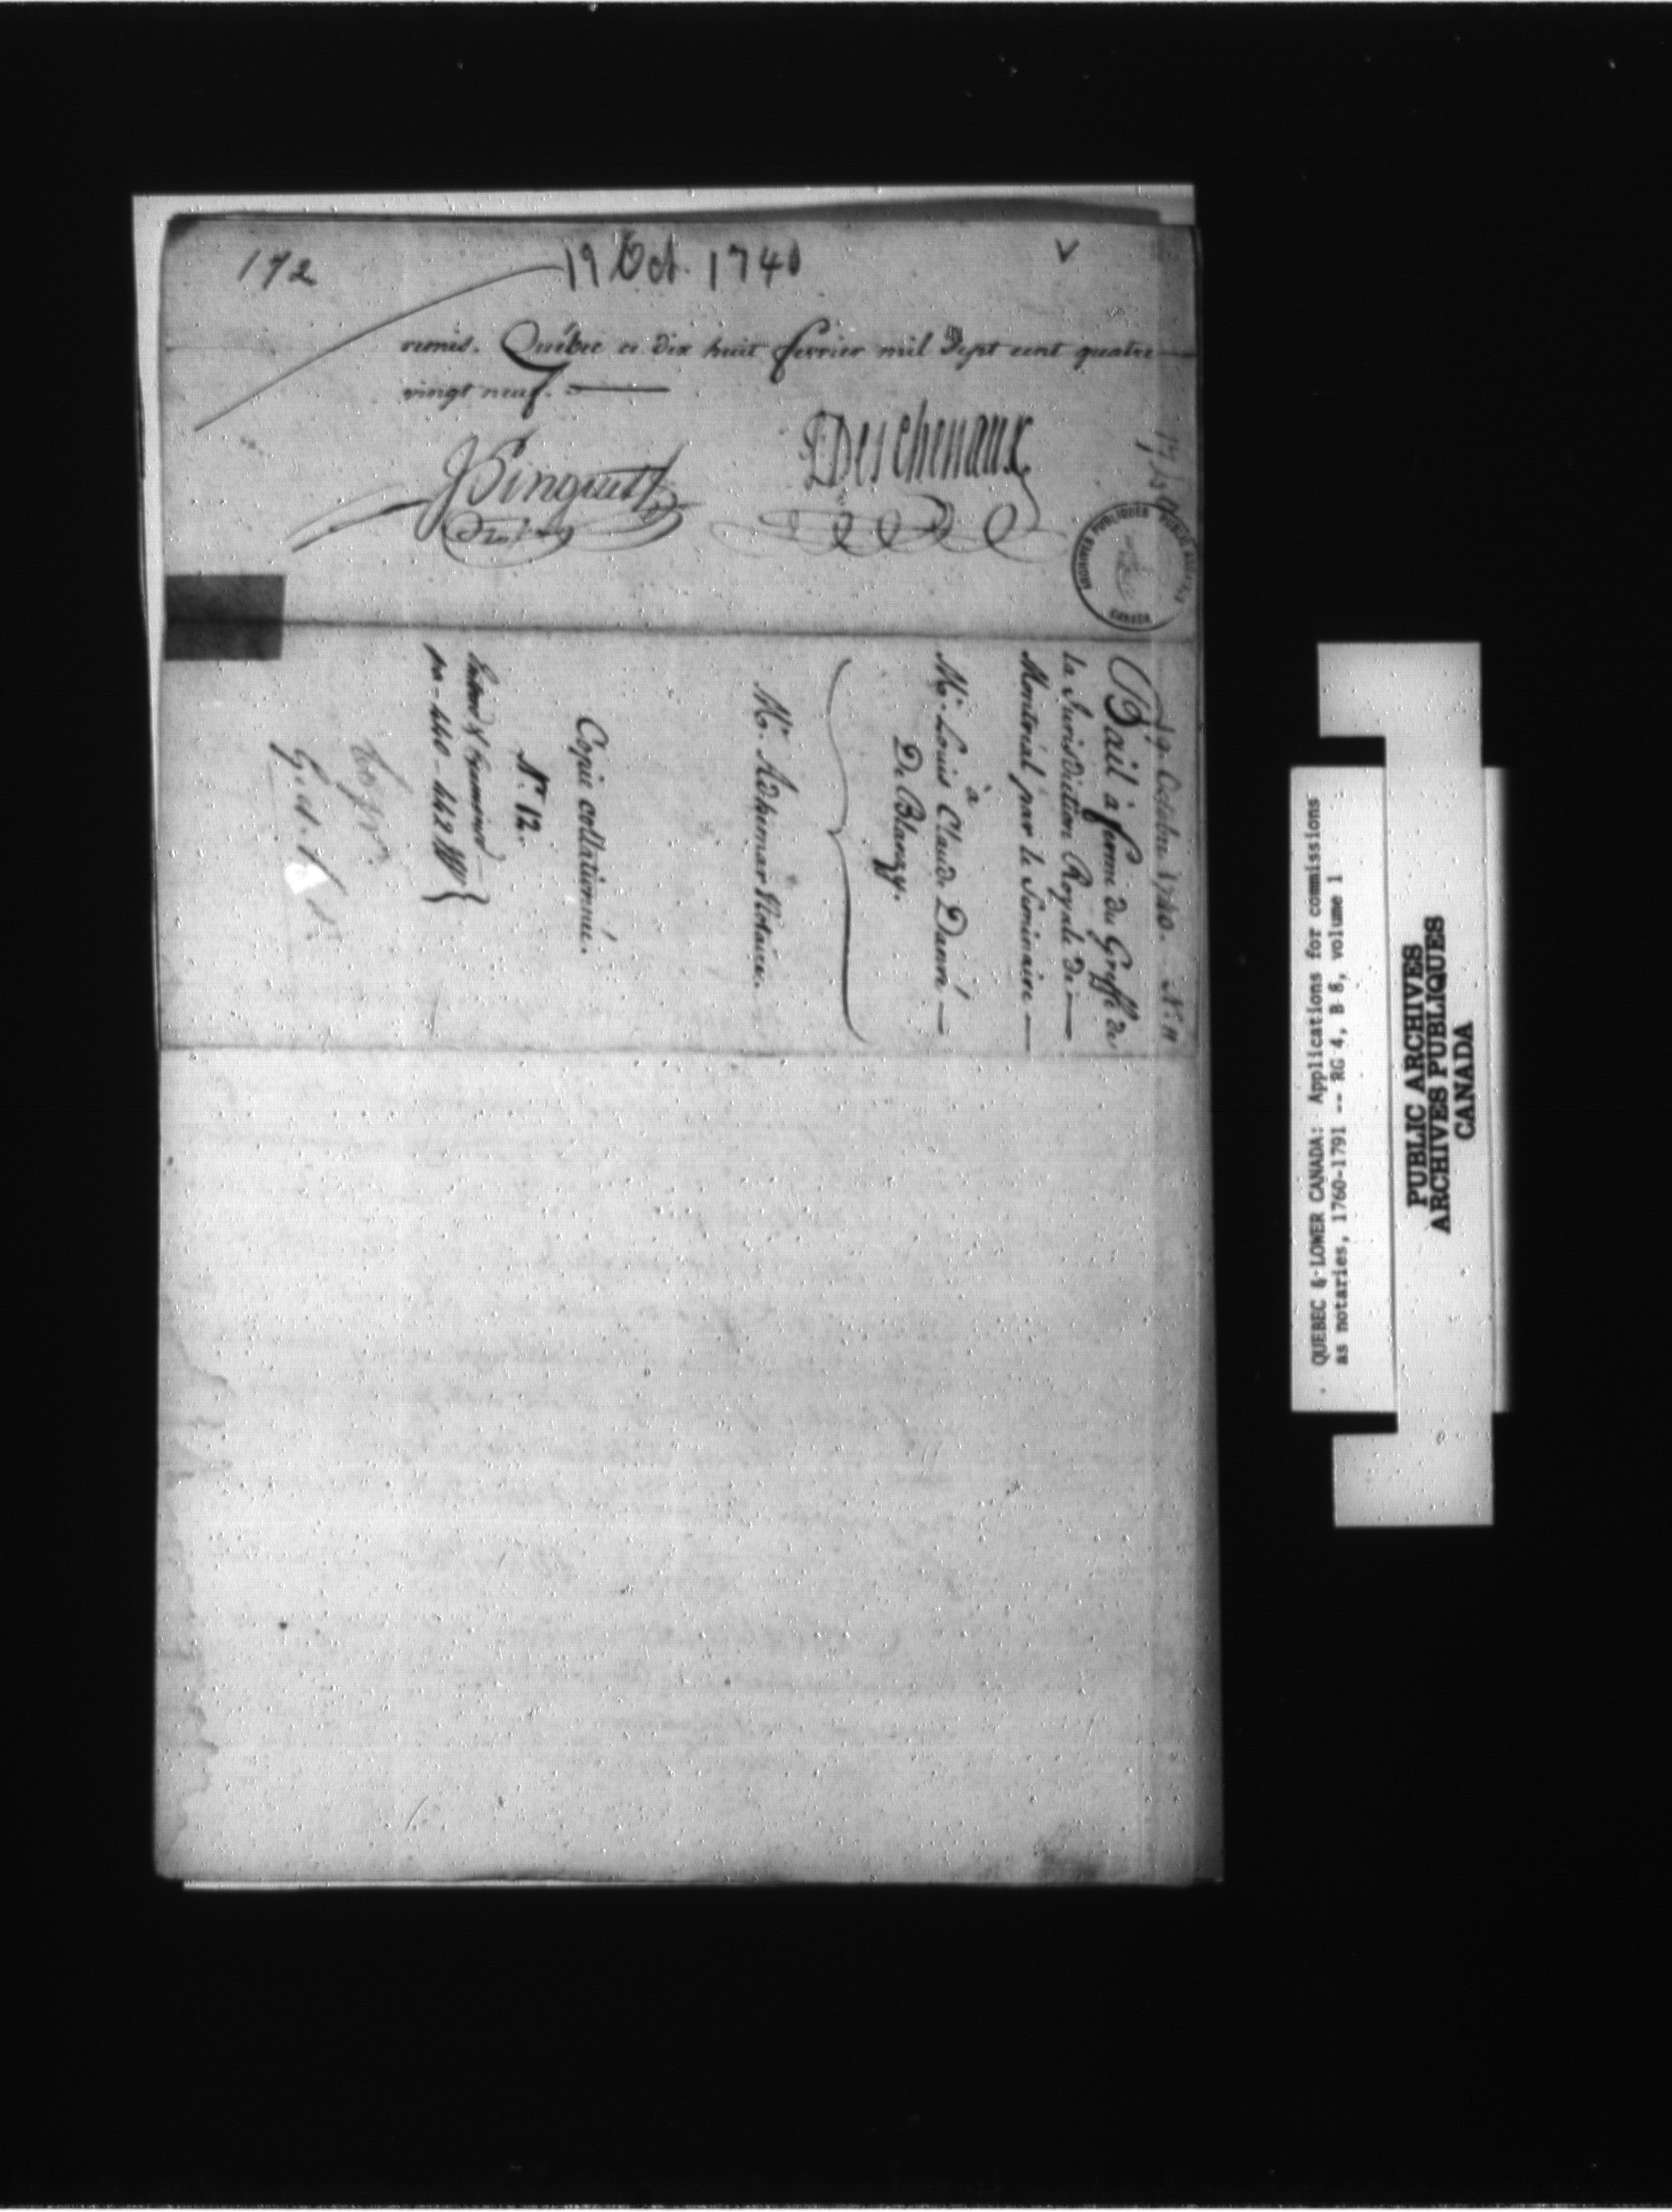 172
19 Oct. 1740
V
remis. Québec ce dix huit fevrier mil Sept cent quatre
vingt neuf.
JPinguet
PDeschenaux
ARCHIVES PUBLIQUES
PUBLIC ARCHIVES
CANADA
19. Octobre 1740. N: 11
Bail à ferme du Greffe de
la Jurisdiction Royale de
Montréal par le Seminaire
à
Mr. Louis Claude Danré
De Blanzy.
Mr. Adhemar Notaire.
Copie collationnée.
N: 12.
Entered & Examined
pa - 440 - 442
QUEBEC & LOWER CANADA: Applications for commissions
as notaries, 1760-1791 -- RG 4, B 8, volume 1
PUBLIC ARCHIVES
ARCHIVES PUBLIQUES
CANADA